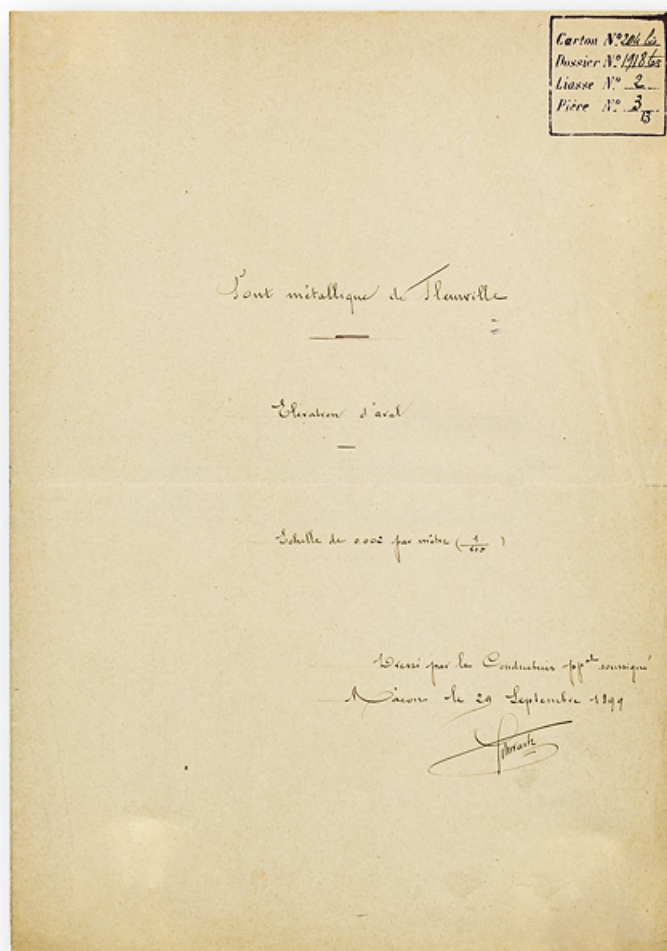 Carton N° 204 bis
Dossier N° 1918 ter
Liasse N° 2
Pièce N° 3/13
Pont métallique de Fleurville
Elévation d'aval
Echelle de 0.002 par mètre (1/500)
Dressé par le Conducteur ppal soussigné
Mâcon le 29 Septembre 1899